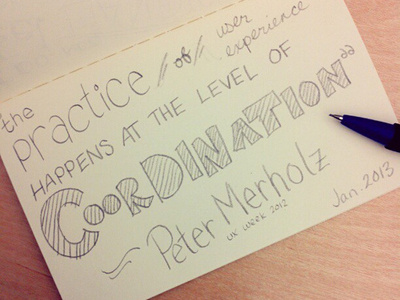 the
practice //of// user experience
HAPPENS AT THE LEVEL OF
COORDINATION"
~ Peter Merholz
UX WEEK 2012
Jan. 2013